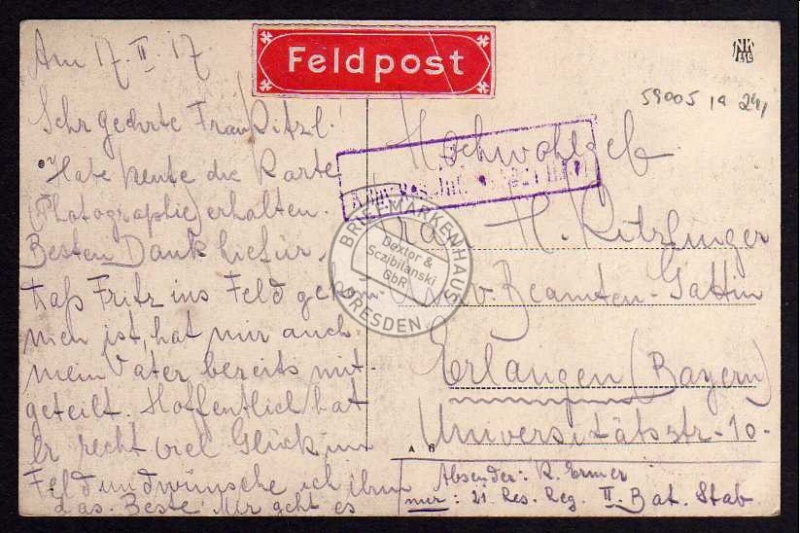 Feldpost
Am 17. II. 17
59005 14 241
Sehr geehrte Frau Ritzl!
Habe heute die Karte
(Photographie) erhalten.
Besten Dank hiefür,
daß Fritz ins Feld gekom-
men ist, hat mir auch
mein Vater bereits mit-
geteilt. Hoffentlich hat
er recht viel Glück im
Feld und wünsche ich ihm
das Beste. Mir geht es
Hochwohlgeb
Frau H. Ritzlinger
v. Beamten-Gattin
Erlangen (Bayern)
Universitätsstr. 10.
Absender: R. Ermer
21. Res. Reg. II. Bat. Stab
BRIEFMARKENHAUS
Dextor &
Sczibilanski
GbR
DRESDEN